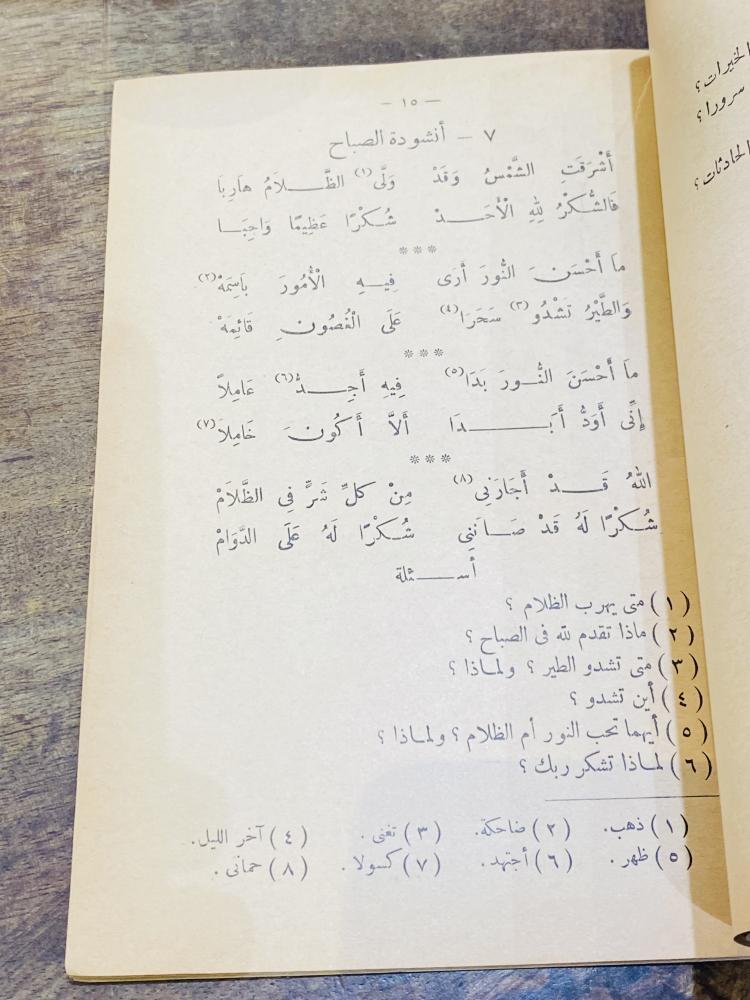 — ١٥ —
٧ — أنشودة الصباح
أَشْرَقَتِ الشَّمْسُ وَقَدْ وَلَّى(١) الظَّـــلَامُ هارِبَا
فَالشُّكْرُ لِلهِ الْأَحَـــدْ شُكْرًا عَظِيمًا وَاجِبَـا
***
مَا أَحْسَنَ النُّورَ أَرَى فِيـهِ الْأُمُورَ بَاسِمَهْ(٢)
وَالطَّيْرُ تَشْدُو(٣) سَحَرَا(٤) عَلَى الْغُصُونِ قَائِمَهْ
***
مَا أَحْسَنَ النُّـــورَ بَدَا(٥) فِيهِ أَجِـــدُّ(٦) عَامِلاً
إِنِّى أَوَدُّ أَبَـــــــدَا أَلاَّ أَكُونَ خَامِلاَ(٧)
***
اللهُ قَـــدْ أَجَارَنِى(٨) مِنْ كلِّ شَرٍّ فِى الظَّلَامْ
شُكْرًا لَهُ قَدْ صَـانَنِى شُكْرًا لَهُ عَلَى الدَّوَامْ
أســـئلة
(١) متى يهرب الظلام ؟
(٢) ماذا تقدم لله فى الصباح ؟
(٣) متى تشدو الطير ؟ ولماذا ؟
(٤) أين تشدو ؟
(٥) أيهما تحب النور أم الظلام ؟ ولماذا ؟
(٦) لماذا تشكر ربك ؟
(١) ذهب. (٢) ضاحكة. (٣) تغنى. (٤) آخر الليل.
(٥) ظهر. (٦) أجتهد. (٧) كسولا. (٨) حمانى.
الخيرات ؟
سرورا ؟
الحادثات ؟